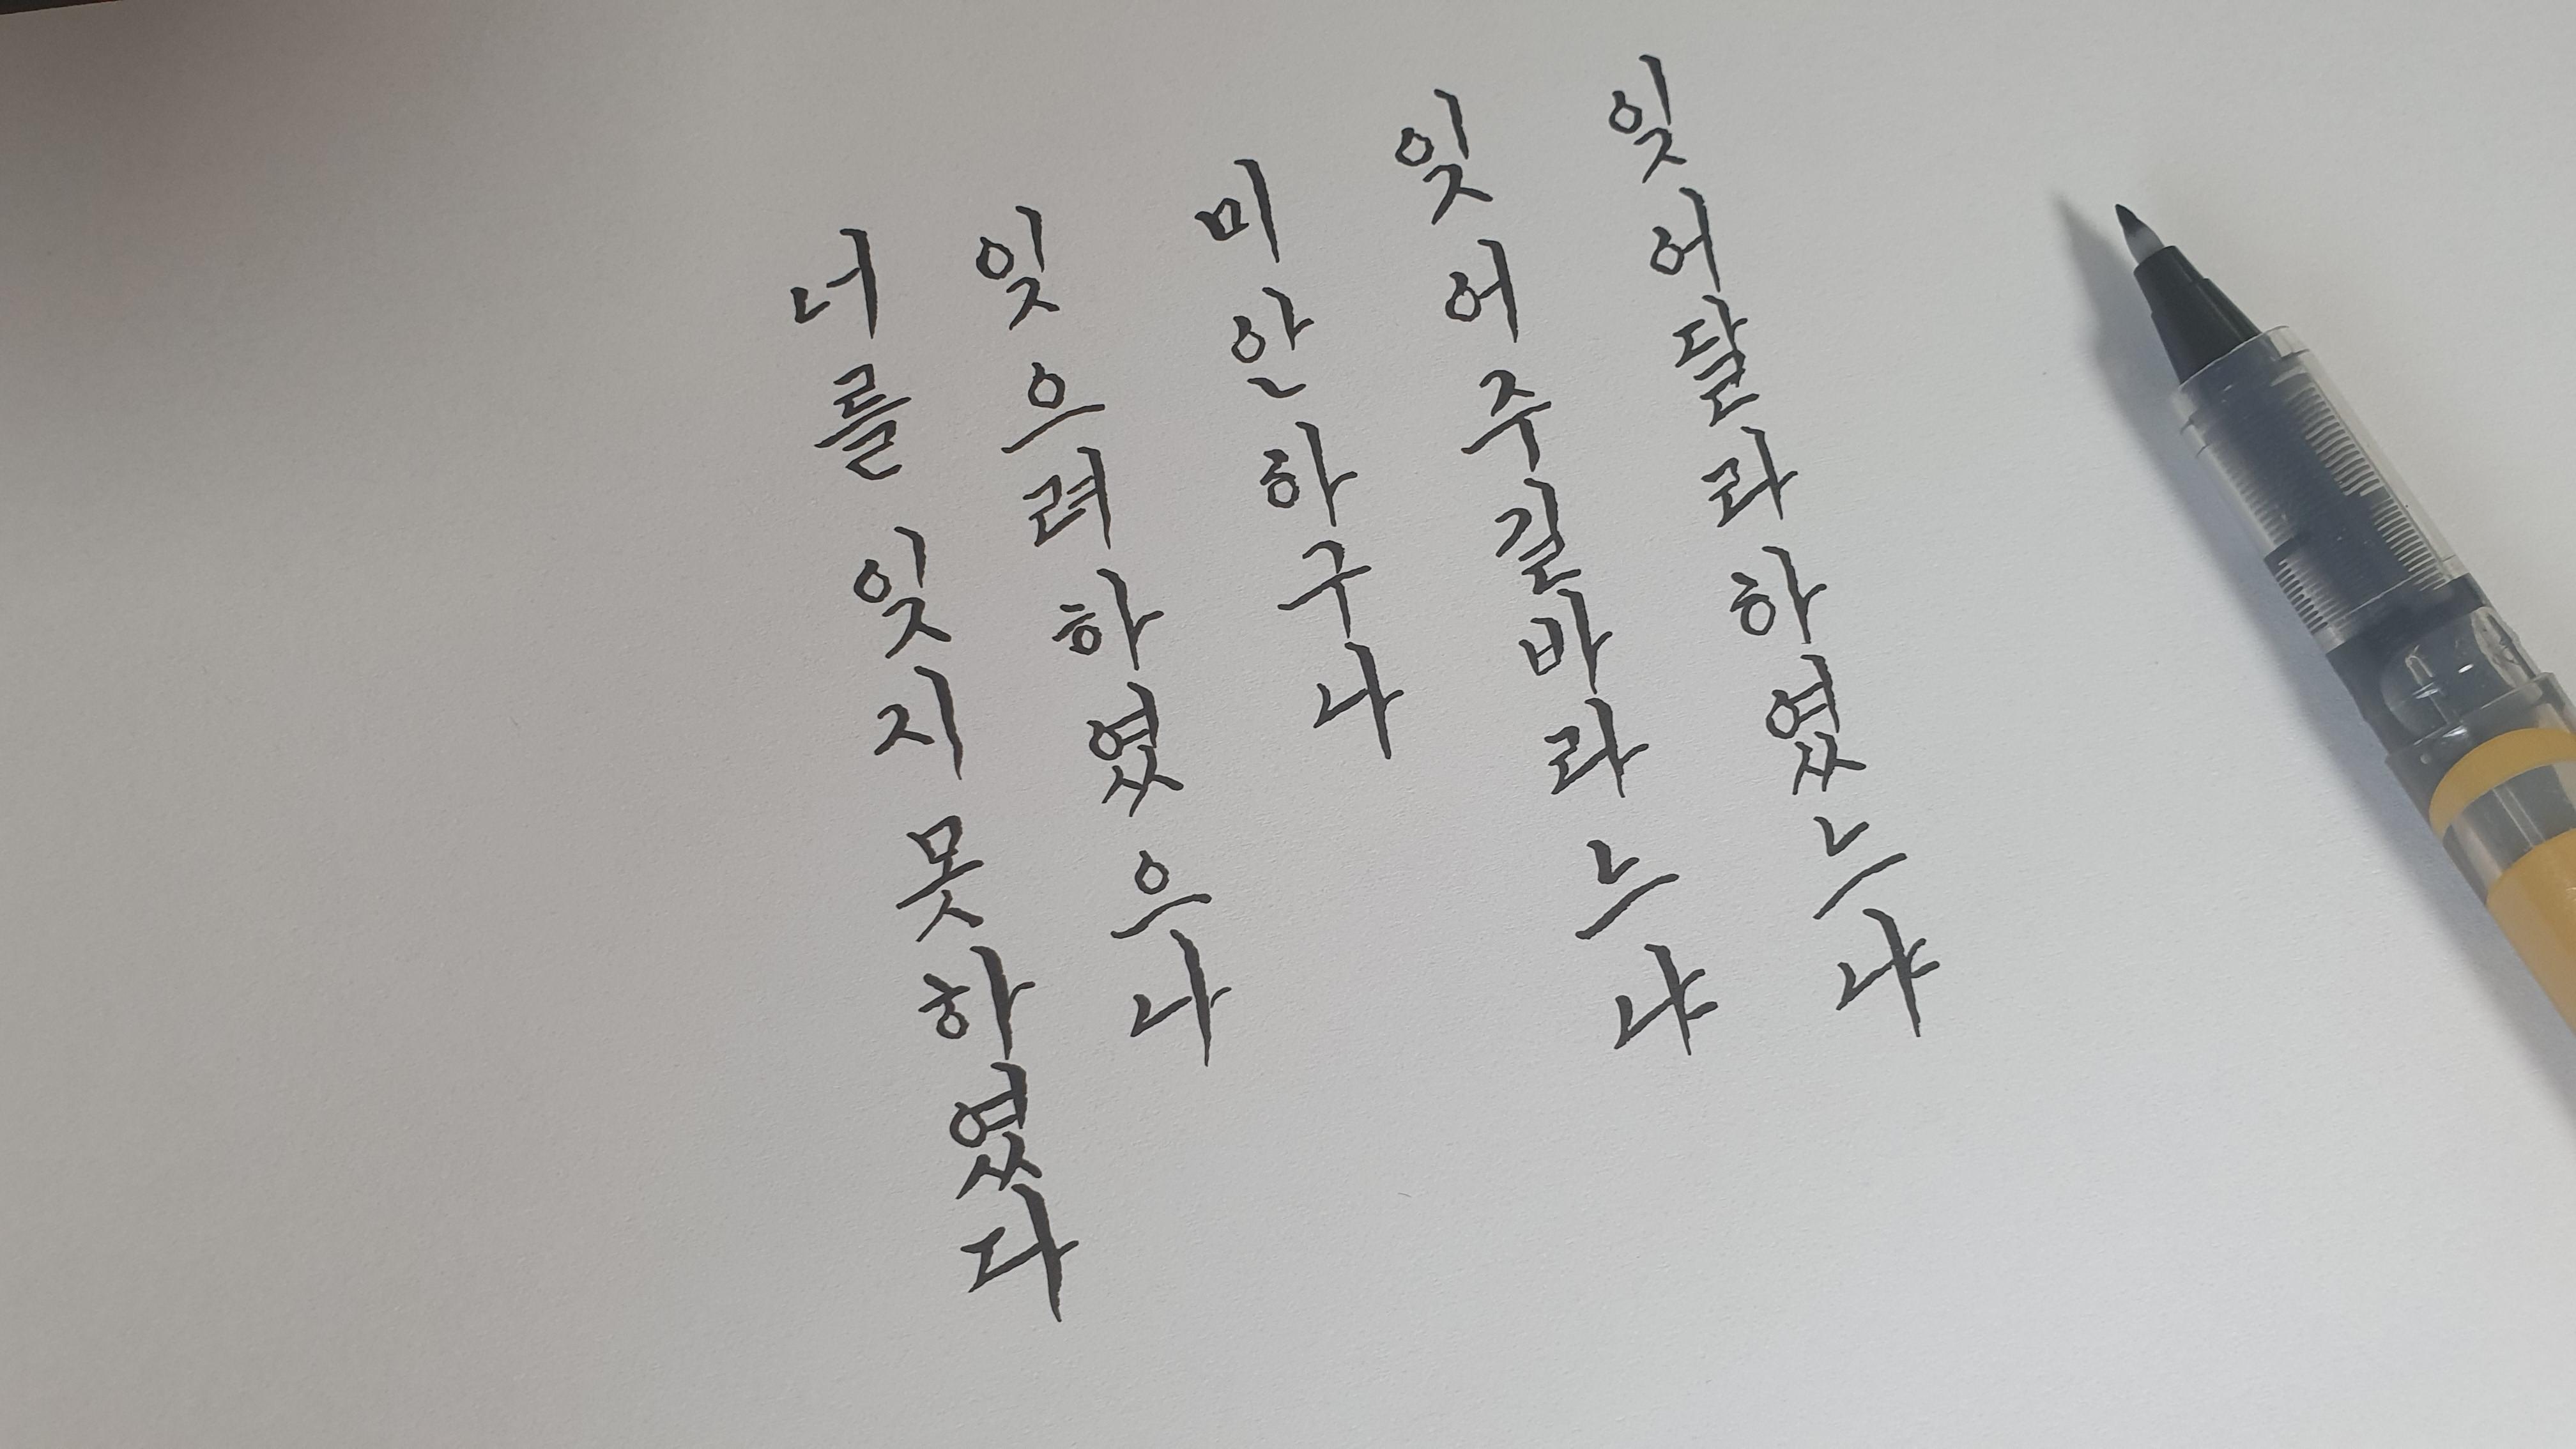 잊어달라하였느냐
잊어주길바라느냐
미안하구나
잊으려하였으나
너를 잊지 못하였다